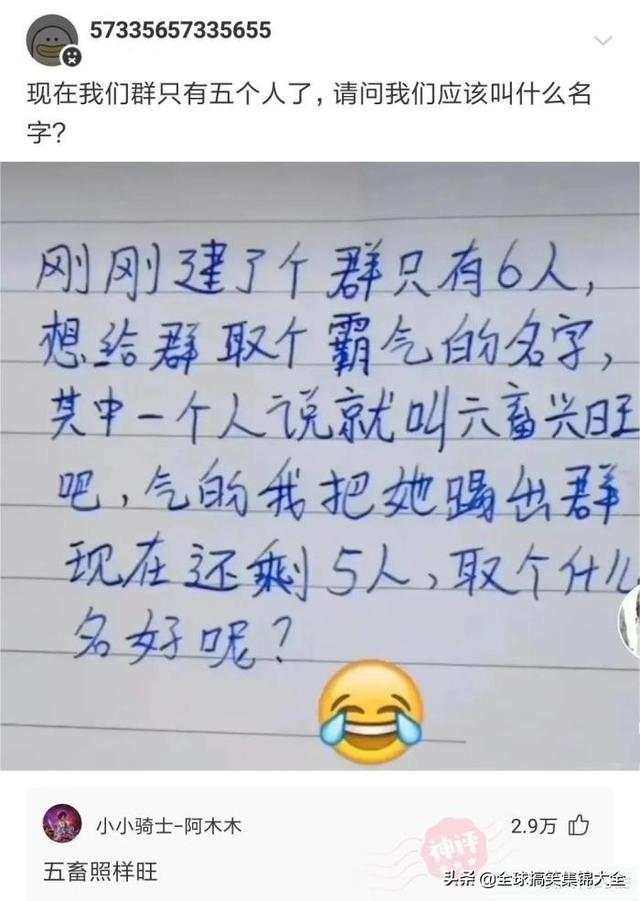 57335657335655
现在我们群只有五个人了，请问我们应该叫什么名
字？
刚刚建了个群只有6人，
想给群取个霸气的名字，
其中一个人说就叫六畜兴旺
吧，气的我把她踢出群
现在还剩5人，取个什么
名好呢？
小小骑士-阿木木
神评
2.9万
五畜照样旺
头条 @全球搞笑集锦大全